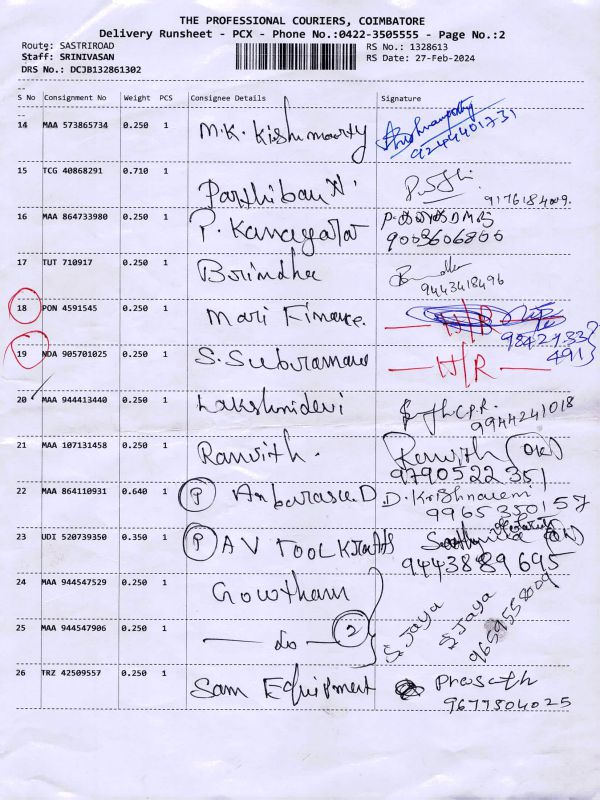 THE PROFESSIONAL COURIERS, COIMBATORE
Delivery Runsheet - PCX - Phone No.:0422-3505555 - Page No.:2
Route: SASTRIROAD RS No.: 1328613
Staff: SRINIVASAN RS Date: 27-Feb-2024
DRS No.: DCJB132861302
S No Consignment No Weight PCS Consignee Details Signature
14 MAA 573865734 0.250 1 M.K. Kishnmoorty
9244401731
15 TCG 40868291 0.710 1 Parthiban N.
9176184009.
16 MAA 864733980 0.250 1 P. Kanagaraj
9003606800
17 TUT 710917 0.250 1 Brindha
9443418496
18 PON 4591545 0.250 1 Mari Finance. H/R
19 NDA 905701025 0.250 1 S. Subramani H/R
20 MAA 944413440 0.250 1 Lakshmidevi C.P.R.
9944241018
21 MAA 107131458 0.250 1 Ranvith. Ranvith (OK)
9790522351
22 MAA 864110931 0.640 1 P Anbarasu D D. Krishnaveni
9965350157
23 UDI 520739350 0.350 1 P A V TOOL KRAFTS
9443889695
24 MAA 944547529 0.250 1 Gowtham S. Jaya S. Jaya
9659558009
25 MAA 944547906 0.250 1 — do — 2
26 TRZ 42509557 0.250 1 Sam Equipment Prasath
9677504025